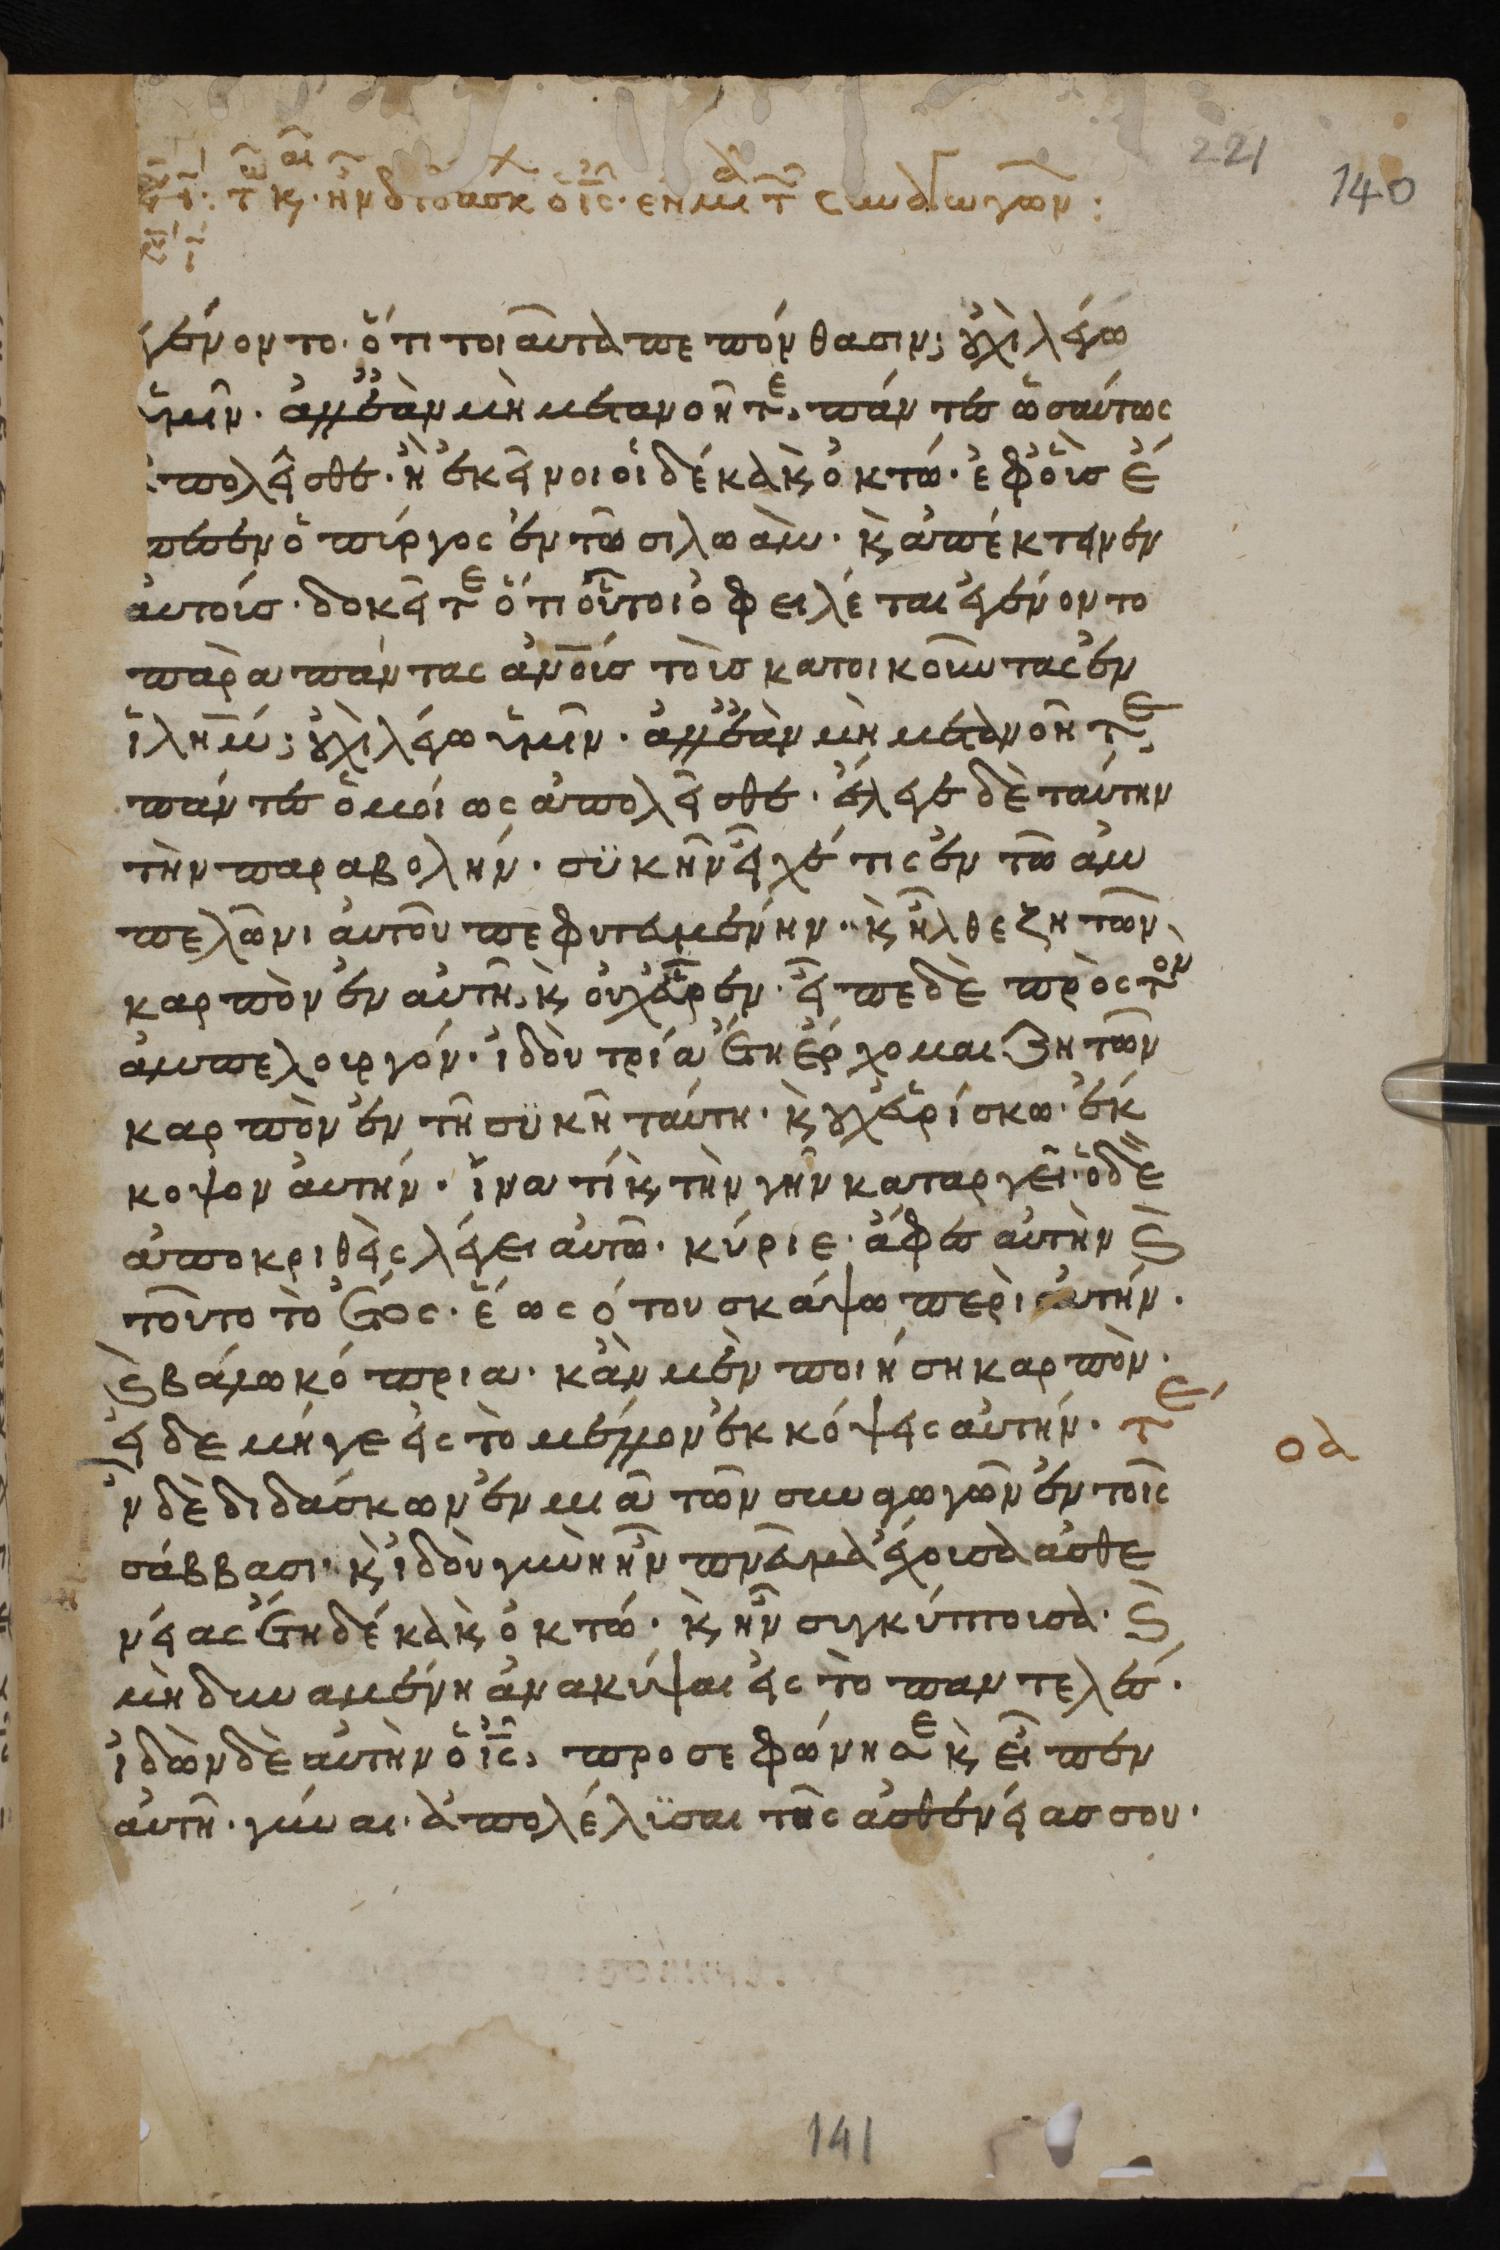 221
140
τῶ κ(αι)ρ. ἦν διδάσκ(ων) ὁ ις. ἐν μιᾷ τ(ῶν) συναγωγῶν:
γένοντο. ὅτι τοιαῦτα πεπόνθασιν; οὐχὶ λέγω
ὑμῖν. ἀλλ' ἐὰν μὴ μετανοῆτε, πάντες ὡσαύτως
ἀπολεῖσθε. ἢ ἐκεῖνοι οἱ δέκα κ, ὀκτώ. ἐφ' οὓς ἔ
πεσεν ὁ πύργος ἐν τῶ σιλωὰμ. κ, ἀπέκτεινεν
αὐτούς. δοκεῖτε ὅτι οὗτοι ὀφειλέται ἐγένοντο
παρὰ πάντας ἀνοῦς τοὺς κατοικοῦντας ἐν
ἱλημ; οὐχὶ λέγω ὑμῖν. ἀλλ' ἐὰν μὴ μετανοῆτε,
πάντες ὁμοίως ἀπολεῖσθε. ἔλεγε δὲ ταύτην
τὴν παραβολήν. συκῆν εἶχέ τις ἐν τῶ ἀμ
πελῶνι αὐτοῦ πεφυτευμένην. κ, ἦλθε ζητῶν
καρπὸν ἐν αὐτῆ, κ, οὐχ εὗρεν. εἶπε δὲ πρὸς τὸν
ἀμπελουργόν. ἰδοὺ τρία ἔτη ἔρχομαι ζητῶν
καρπὸν ἐν τῆ συκῆ ταύτη. κ, οὐχ εὑρίσκω. ἔκ
κοψον αὐτήν. ἵνα τί κ, τὴν γῆν καταργεῖ. ὁ δὲ
ἀποκριθεὶς λέγει αὐτῶ. κύριε. ἄφες αὐτὴν κ,
τοῦτο τὸ ἔτος. ἕως ὅτου σκάψω περὶ αὐτήν.
κ, βάλω κόπρια. κἂν μὲν ποιήση καρπὸν.
εἰ δε μήγε εἰς τὸ μέλλον ἐκκόψεις αὐτήν. τε
οα
ἦν δὲ διδάσκων ἐν μιᾶ τῶν συναγωγῶν ἐν τοῖς
σάββασι. κ, ἰδοὺ γυνὴ ἦν πνεῦμα ἔχουσα ἀσθε
νείας ἔτη δέκα κ, ὀκτώ. κ, ἦν συγκύπτουσα. κ,
μὴ δυναμένη ἀνακύψαι εἰς τὸ παντελές.
ἰδὼν δὲ αὐτὴν ὁ ις, προσεφώνησε κ, εἶπεν
αὐτῆ. γύναι. ἀπολέλυσαι τῆς ἀσθενείας σου.
141